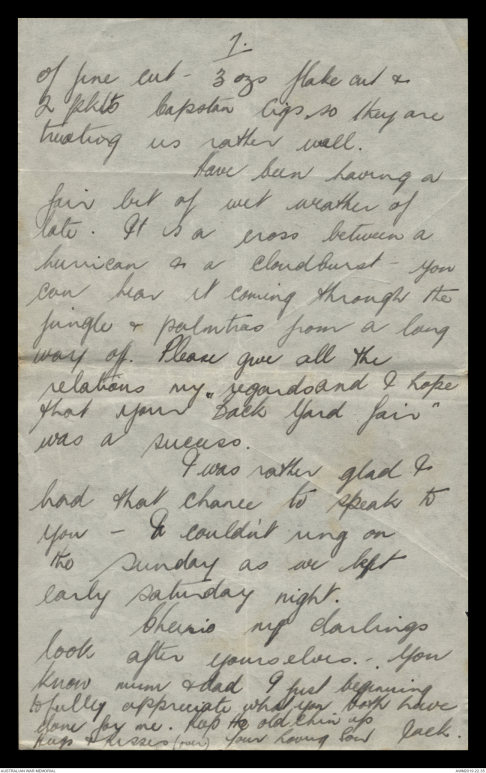 7.
of fine cut - 3 ozs flake cut &
2 pkts Capstan Cigs, so they are
treating us rather well.
Have been having a
fair bit of wet weather of
late. It is a cross between a
hurrican & a cloudburst - you
can hear it coming through the
jungle & palmtrees from a long
way off. Please give all the
relations my regards and I hope
that your "Back Yard Fair"
was a success.
I was rather glad I
had that chance to speak to
you - I couldn't ring on
the Sunday as we left
early Saturday night.
Cheerio my darlings
look after yourselves. - You
know mum & dad I just beginning
to fully appreciate what you both have
done for me. Keep the old chin up
Hugs & kisses (over) Your loving son Jack.
AUSTRALIAN WAR MEMORIAL